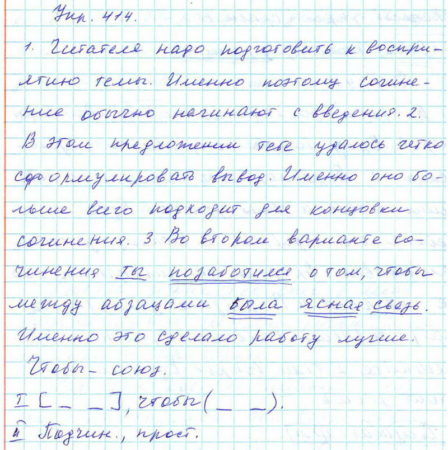 Упр. 414.
1. Читателя надо подготовить к воспри-
ятию темы. Именно поэтому сочине-
ние обычно начинают с введения. 2.
В этом предложении тебе удалось чётко
сформулировать вывод. Именно оно бо-
льше всего подходит для концовки
сочинения. 3. Во втором варианте со-
чинения ты позаботился о том, чтобы
между абзацами была ясная связь.
Именно это сделало работу лучше.
Чтобы – союз.
I [_ _], чтобы (_ _).
II Подчин., прост.